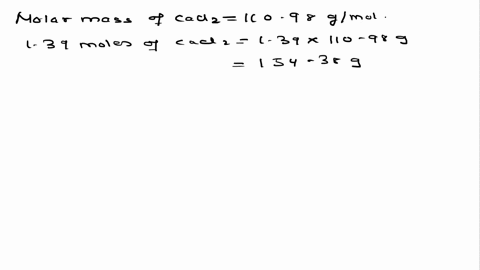 Molar mass of CaCl2 = 110.98 g/mol.
1.39 moles of CaCl2 = 1.39 x 110.98 g
= 154.38 g